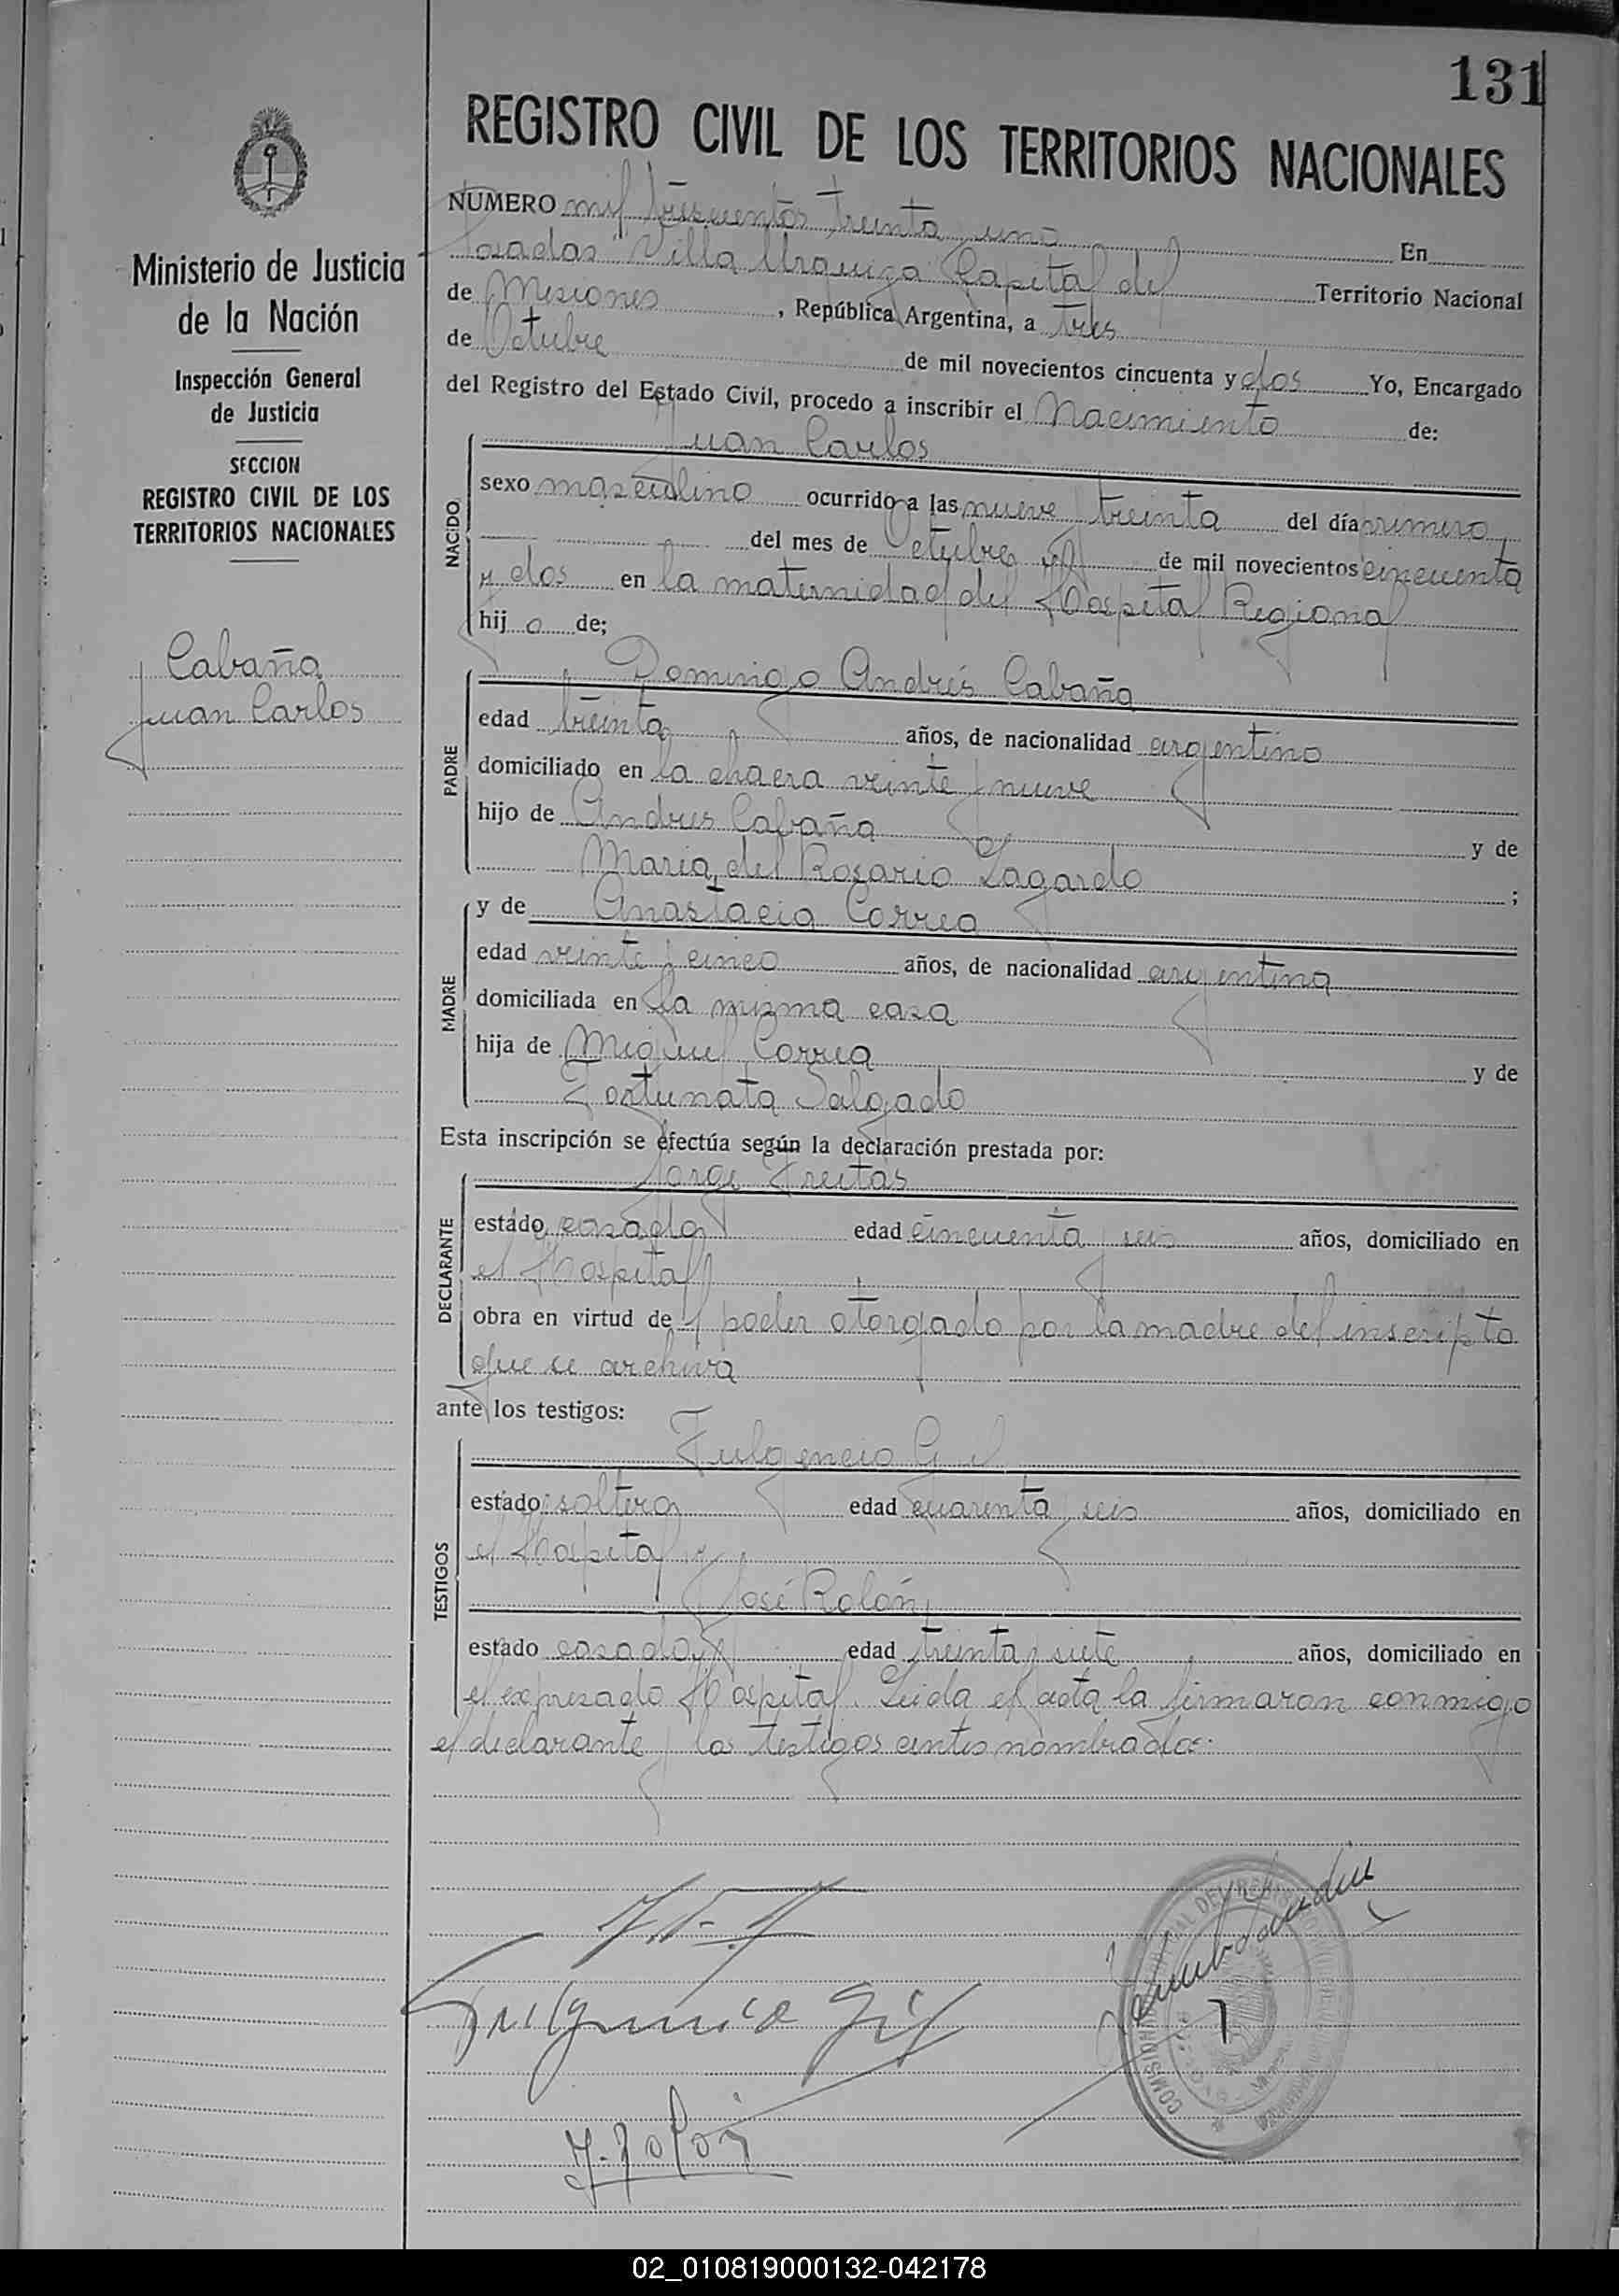 131
REGISTRO CIVIL DE LOS TERRITORIOS NACIONALES
Ministerio de Justicia
de la Nación
Inspección General
de Justicia
SECCION
REGISTRO CIVIL DE LOS
TERRITORIOS NACIONALES
Cabaña
Juan Carlos
NUMERO mil trescientos treinta y uno En
Posadas "Villa Urquiza" Capital del Territorio Nacional
de Misiones, República Argentina, a tres
de Octubre de mil novecientos cincuenta y dos Yo, Encargado
del Registro del Estado Civil, procedo a inscribir el Nacimiento de:
NACIDO
Juan Carlos
sexo masculino ocurrido a las nueve y treinta del día primero
del mes de Octubre de mil novecientos cincuenta
y dos en la maternidad del Hospital Regional
hijo de;
PADRE
Domingo Andrés Cabaña
edad treinta años, de nacionalidad argentino
domiciliado en la chacra veinte y nueve
hijo de Andrés Cabaña y de
María del Rosario Lagardo ;
MADRE
y de Anastacia Correa
edad veinte y cinco años, de nacionalidad argentina
domiciliada en la misma casa
hija de Miguel Correa y de
Fortunata Salgado
Esta inscripción se efectúa según la declaración prestada por:
DECLARANTE
Jorge Freitas
estado casado edad cincuenta y seis años, domiciliado en
el Hospital
obra en virtud de poder otorgado por la madre del inscripto
que se archiva
ante los testigos:
TESTIGOS
Fulgencio Gil
estado soltero edad cuarenta y seis años, domiciliado en
el Hospital y
José Rolón
estado casado edad treinta y siete años, domiciliado en
el expresado Hospital. Leida el acta la firmaron conmigo
el declarante y los testigos antes nombrados.
Fulgencio Gil
J. Rolón
02_010819000132-042178